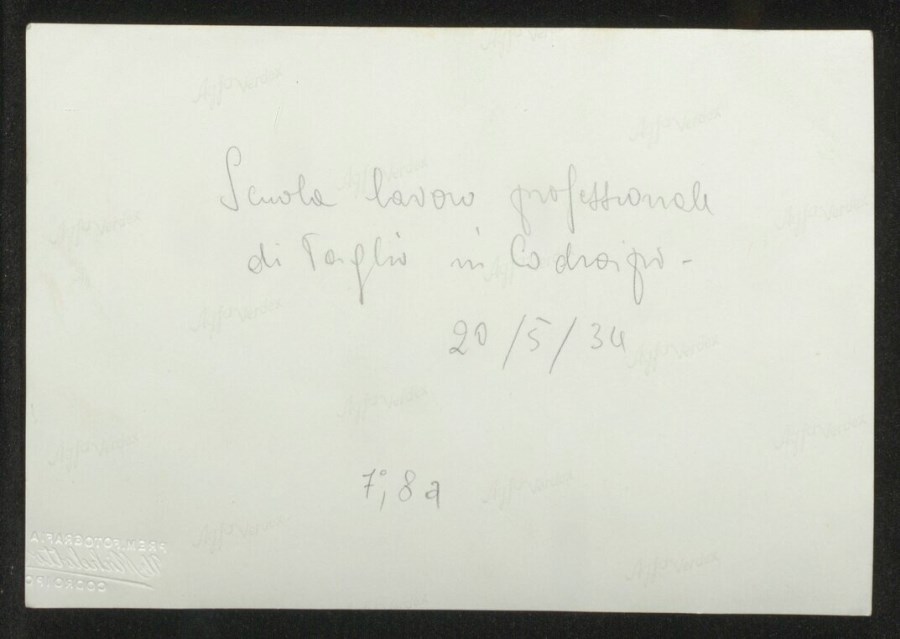 Scuola lavoro professionale
di Taglio in Codroipo -
20/5/34
7°, 8a
PREM. FOTOGRAFIA
CODROIPO